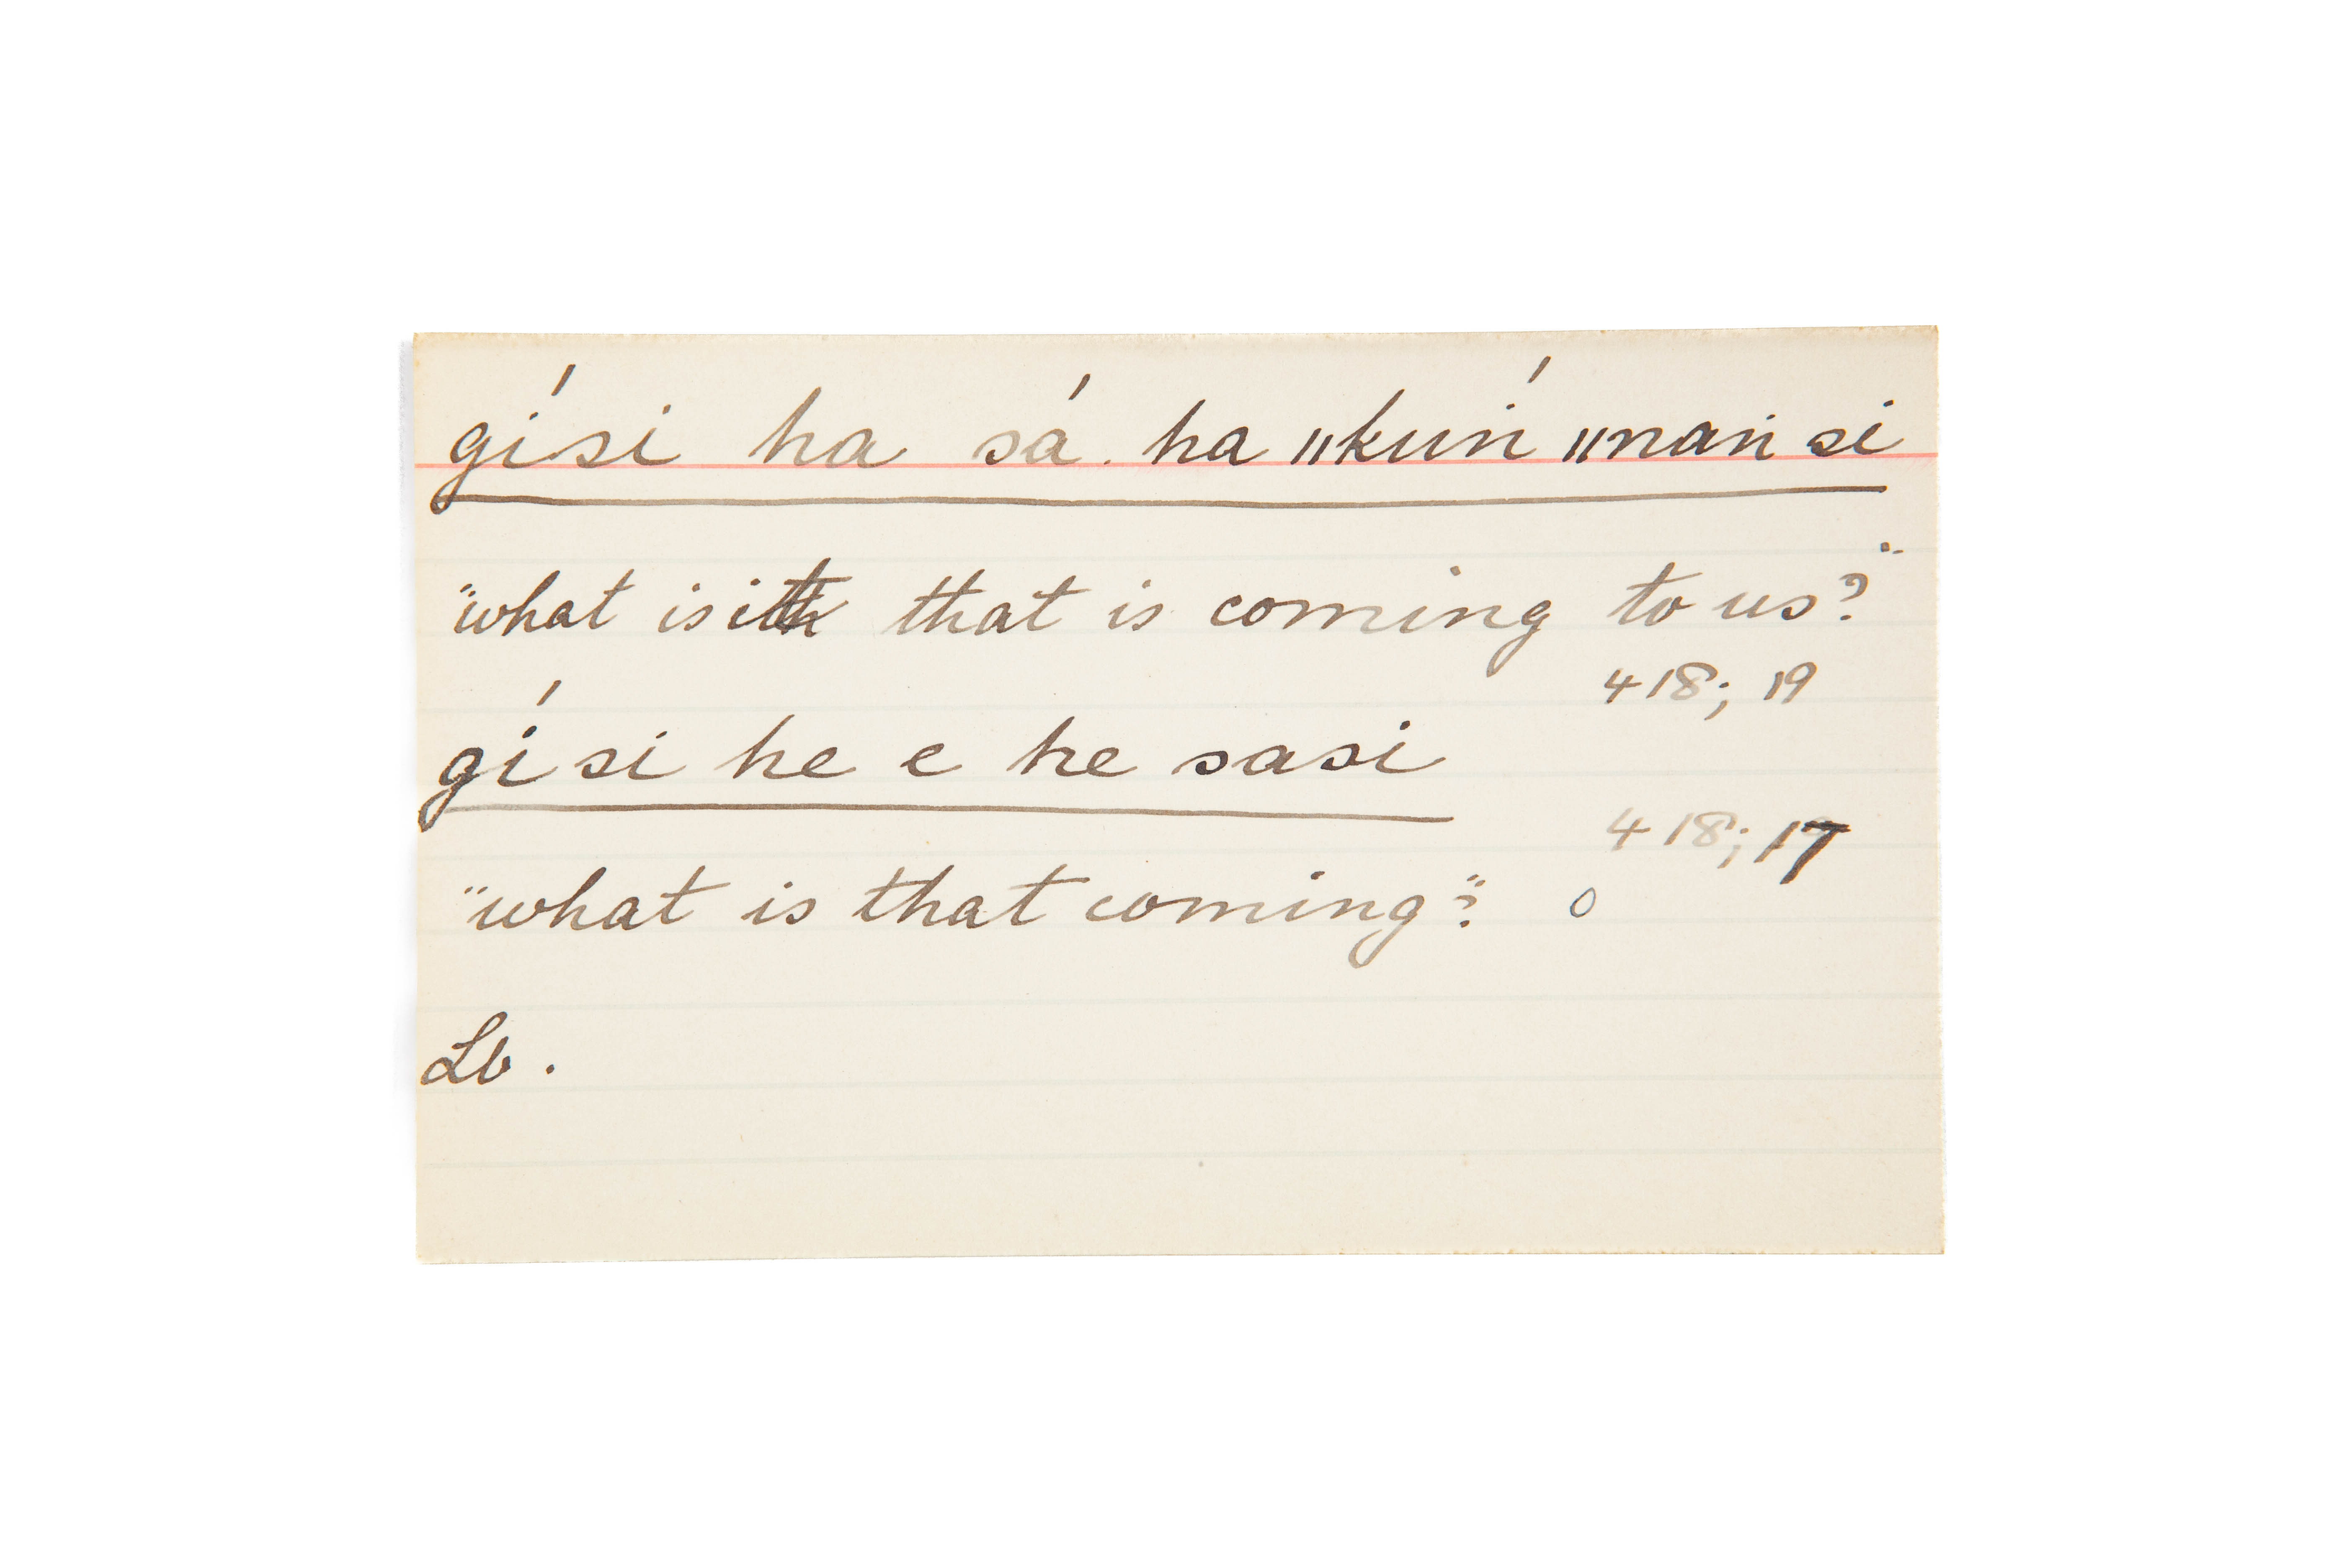 gísi ha sá. ha ǁkuṅ́ ǁnaṅ si
"what is it that is coming to us?"
418; 19
gí si he e he sasi
418; 17
"what is that coming"? 0
Lb.